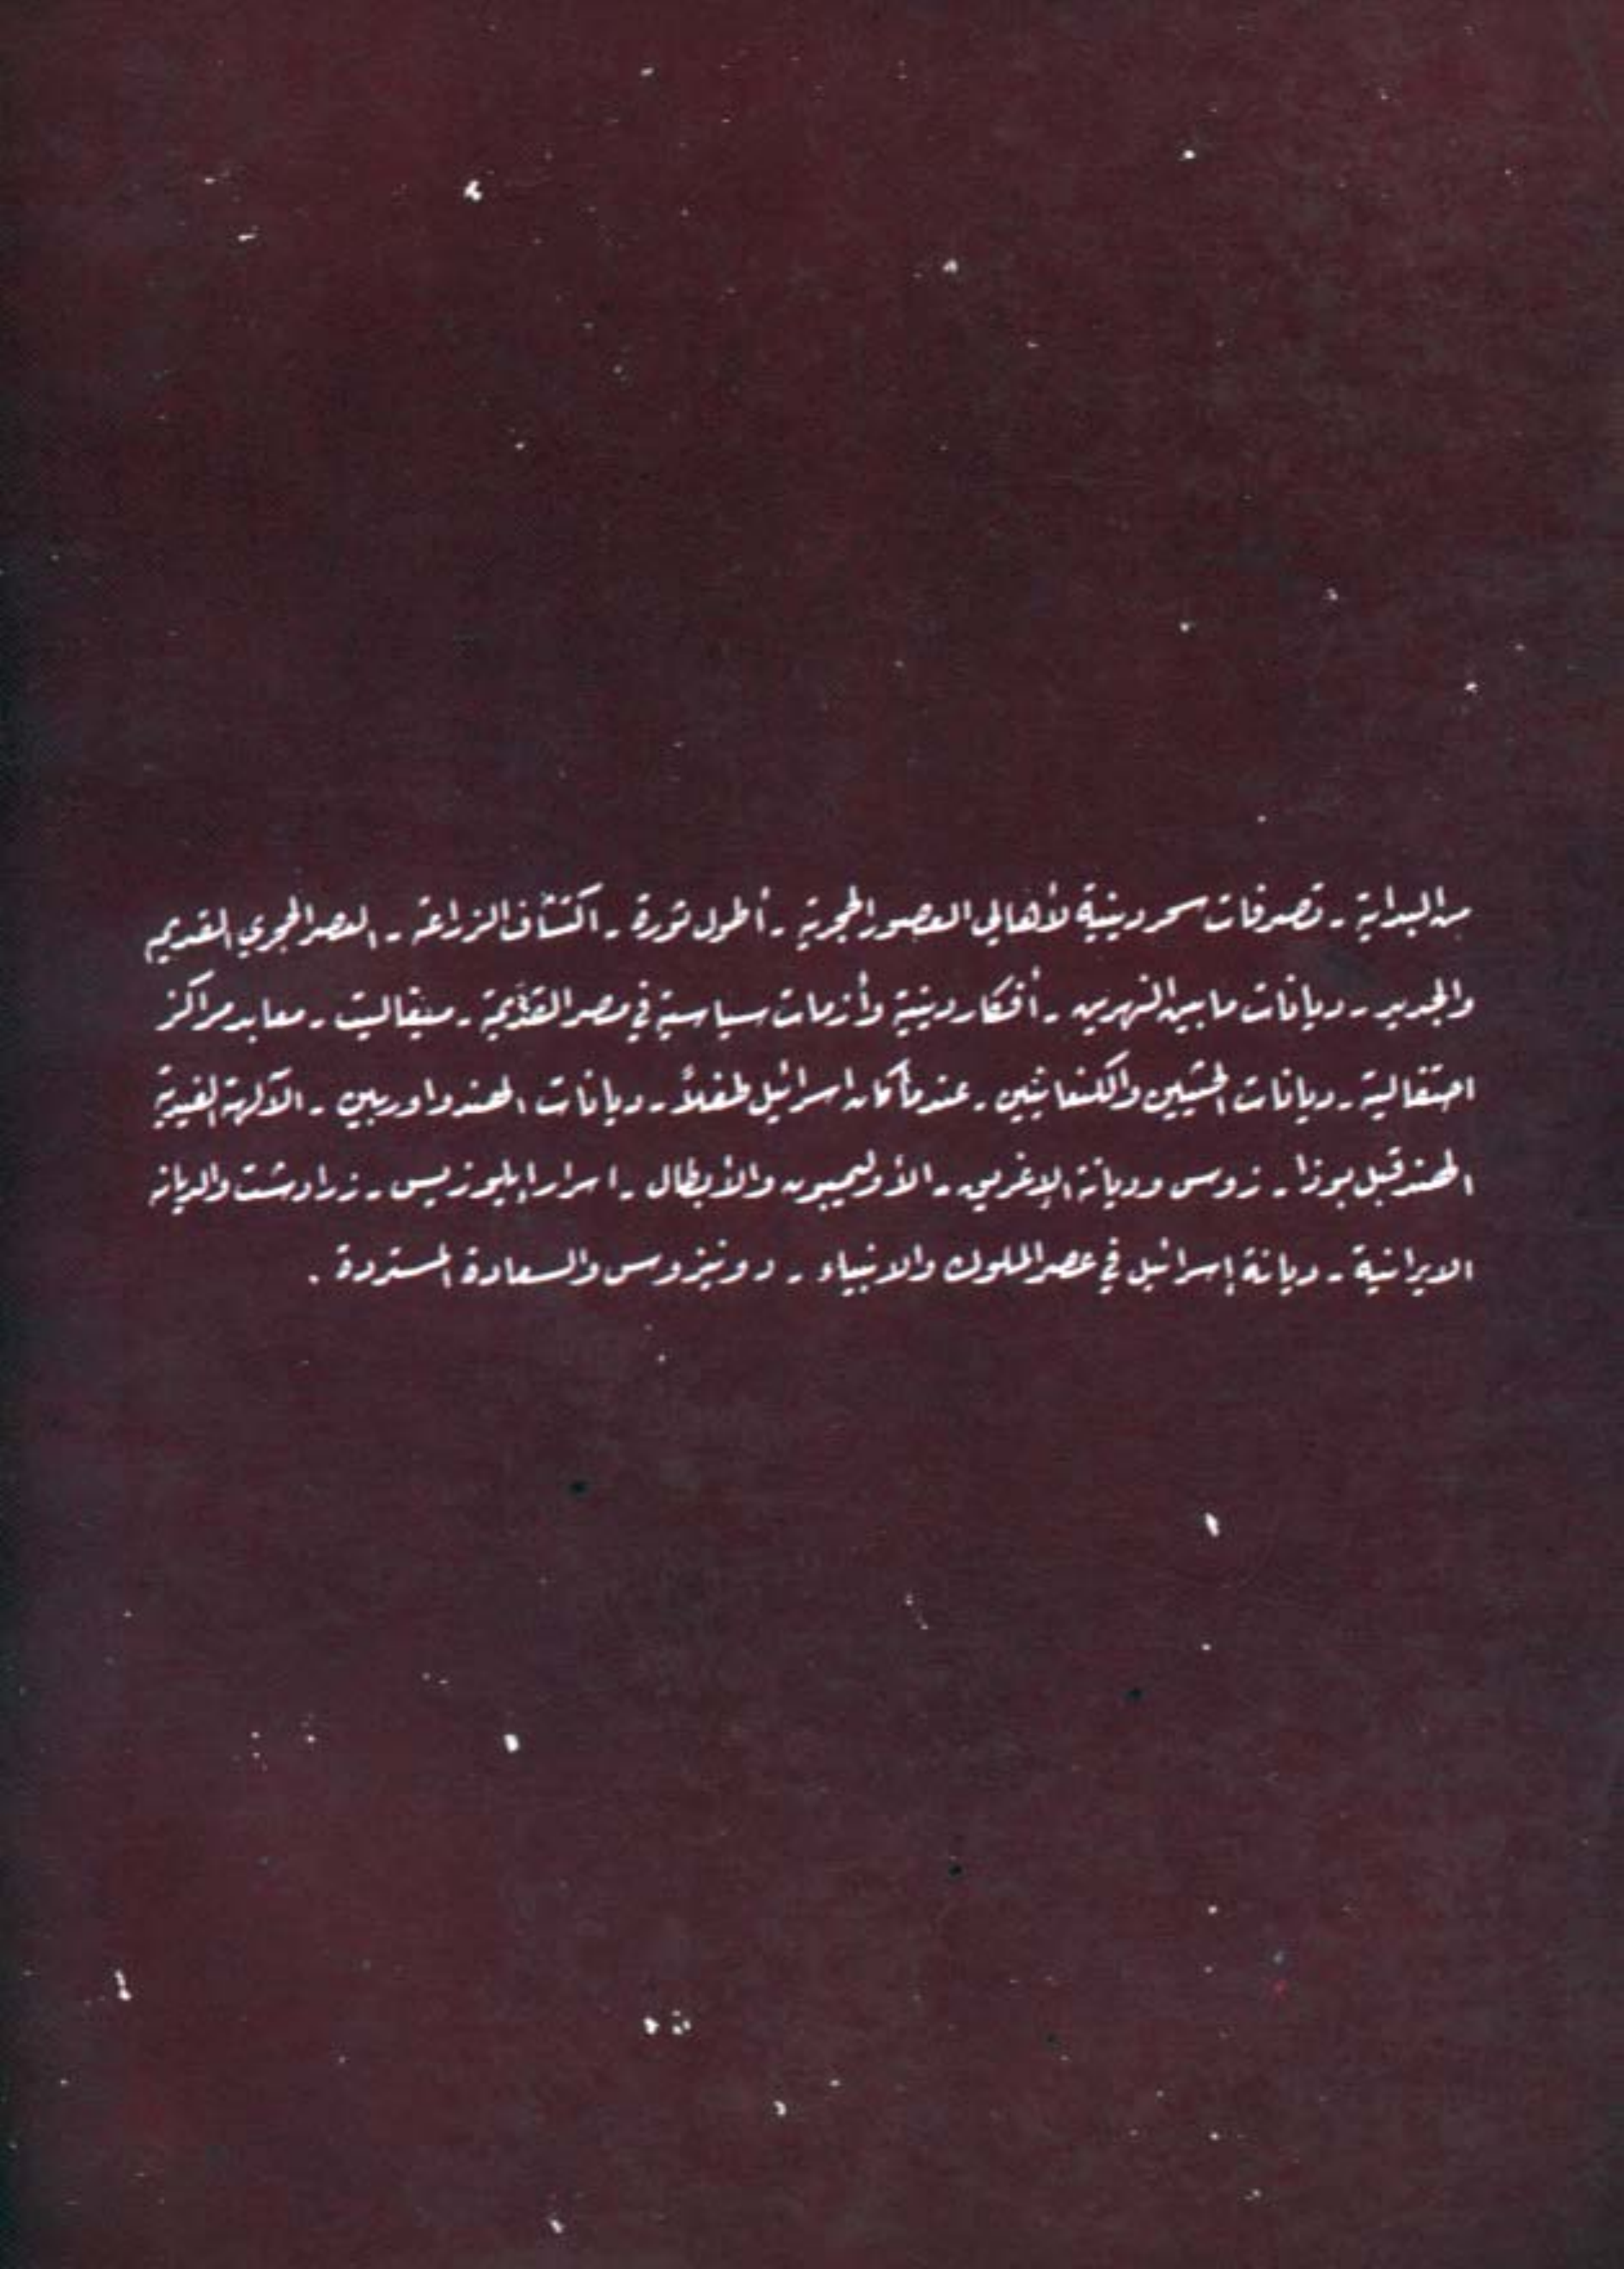 من البداية - تصرفات سحر دينية لأهالي العصور الحجرية - أطول ثورة - اكتشاف الزراعة - العصر الحجري القديم
والجديد - ديانات ما بين النهرين - أفكار دينية وأزمات سياسية في مصر القديمة - ميغاليت - معابد مراكز
احتفالية - ديانات الحثيين والكنعانيين - عندما كان اسرائيل طفلاً - ديانات الهندو اوربيين - الآلهة الفيدية
الهند قبل بوذا - زوس وديانة الإغريق - الأولمبيون والأبطال - اسرار إيليوزيس - زرادشت والديانة
الايرانية - ديانة إسرائيل في عصر الملوك والانبياء - ديونيزوس والسعادة المستردة .